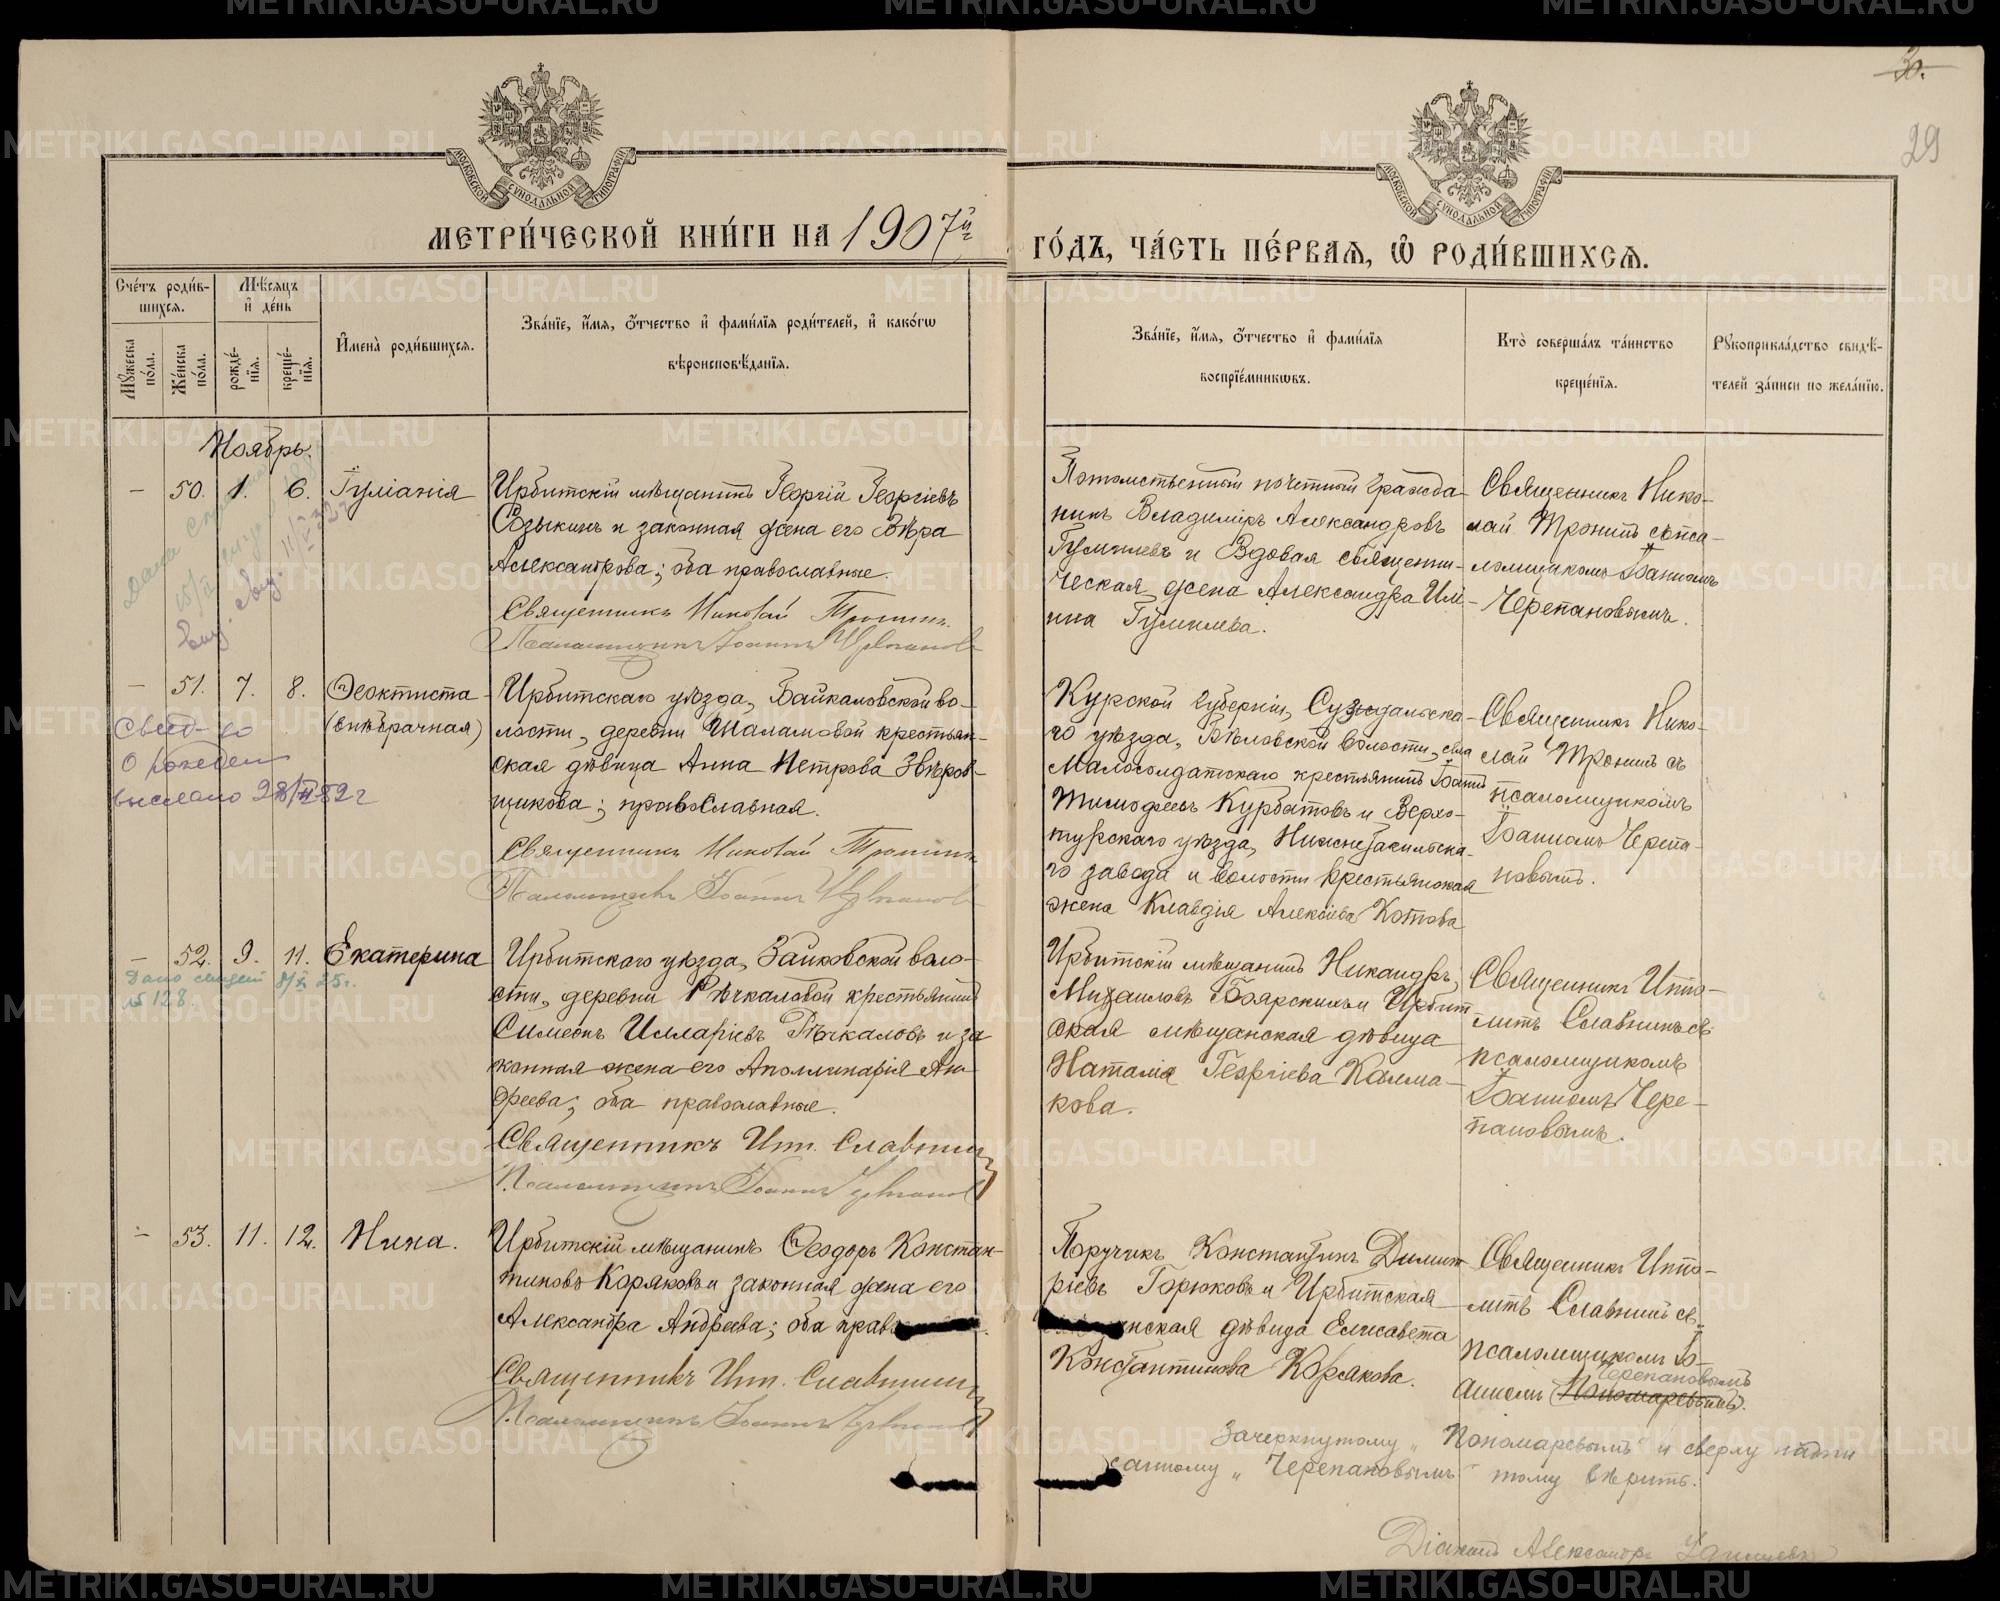 30.
29
МОСКОВСКОЙ СУНОДАЛЬНОЙ ТИПОГРАФІИ
МОСКОВСКОЙ СУНОДАЛЬНОЙ ТИПОГРАФІИ
МЕТРИ́ЧЕСКОЙ КНИ́ГИ НА 1907й
ГО́ДЪ, ЧА́СТЬ ПЕ́РВАѦ, Ѡ РОДИ́ВШИХСѦ.
Сче́тъ роди́в-
шихся.
Мѣ́сяцъ
и҆ де́нь
Му́жеска по́ла.
Же́нска по́ла.
рожде́-
нїя.
креще́-
нїя.
И҆мена̀ роди́вшихся.
Зва́нїе, и҆́мя, ѻ҆́тчество и҆ фами́лїя роди́телей, и҆ како́гѡ
вѣроисповѣ́данїя.
Зва́нїе, и҆́мя, ѻ҆́тчество и҆ фами́лїя
воспрїе́мникѡвъ.
Кто̀ соверша́лъ та́инство
креще́нїя.
Рꙋкоприкла́дство свидѣ́-
телей за́писи по жела́нїю.
Ноябрь.
— 50. 1. 6. Іуліанія
Ирбитскій мѣщанинъ Георгій Георгіевъ
Созыкинъ и законная жена его Вѣра
Александрова; оба православные.
Священникъ Николай Тронинъ.
Псаломщикъ Іоаннъ Черепановъ
Потомственный почетный гражда-
нинъ Владиміръ Александровъ
Гумилевъ и вдовая священни-
ческая жена Александра
Гумилева.
Священникъ Нико-
лай Тронинъ съ пса-
ломщикомъ Іоанномъ
Черепановымъ.
— 51. 7. 8. Ѳеоктиста
(внѣбрачная)
Свид-во
О рожден
выслано 28/II 82 г
Ирбитскаго уѣзда, Байкаловской во-
лости, деревни Шаламовой крестьян-
ская дѣвица Анна Петрова Звѣров-
щикова; православная.
Священникъ Николай Тронинъ
Псаломщикъ Іоаннъ Черепановъ
Курской губерніи, Суздальска-
го уѣзда, Бѣловской волости, села
Малосолдатскаго крестьянинъ Іоаннъ
Тимофеевъ Курбатовъ и Верхо-
турскаго уѣзда, Нижнетагильска-
го завода и волости крестьянская
жена Клавдія Алексіева Котова
Священникъ Нико-
лай Тронинъ съ
псаломщикомъ
Іоанномъ Черепа-
новымъ.
— 52. 9. 11. Екатерина
Дано свидет 8/X 25г.
№ 128.
Ирбитскаго уѣзда, Зайковской воло-
сти, деревни Рѣчкаловой крестьянинъ
Симеонъ Илларіевъ Рѣчкаловъ и за
конная жена его Аполлинарія Ан-
дреева; оба православные.
Священникъ Ип. Славнинъ
Псаломщикъ Іоаннъ Черепановъ
Ирбитскій мѣщанинъ Никандръ
Михаиловъ Боярскихъ и Ирбит
ская мѣщанская дѣвица
Наталія Георгіева Калма-
кова.
Священникъ Иппо-
литъ Славнинъ съ
псаломщикомъ
Іоанномъ Чере-
пановымъ.
— 53. 11. 12. Нина.
Ирбитскій мѣщанинъ Ѳеодоръ Констан-
тиновъ Коряковъ и законная жена его
Александра Андреева; оба правос
Священникъ Ип. Славнинъ
Псаломщикъ Іоаннъ Черепановъ
Поручикъ Константинъ Димит
ріевъ Горюковъ и Ирбитская
мѣщанская дѣвица Елисавета
Константинова Корякова.
Священникъ Иппо-
литъ Славнинъ съ
псаломщикомъ Іо-
Черепановымъ
анномъ (Пономаревымъ).
Зачеркнутому „Пономаревымъ“ и сверху надпи
санному „Черепановымъ“ тому вѣрить.
Діаконъ Александръ
METRIKI.GASO-URAL.RU